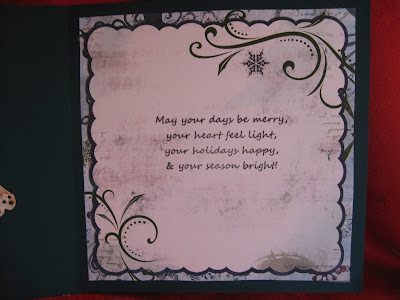 May your days be merry,
your heart feel light,
your holidays happy,
& your season bright!